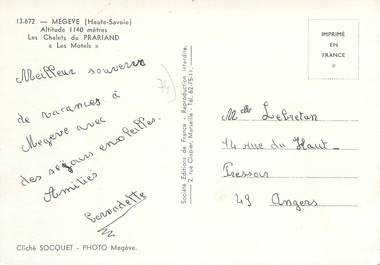 13.672 — MEGEVE (Haute-Savoie)
Altitude 1140 mètres
Les Chalets du PRARIAND
« Les Motels »
Meilleur souvenir
de vacances à
Megève avec
des séjours ensoleillés.
Amitiés
Bernadette
74)
Cliché SOCQUET - PHOTO Megève.
Société Editions de France - Reproduction interdite.
2, rue Clapier, Marseille - Tél. 62-75-11.
IMPRIMÉ
EN
FRANCE
Melle Lebreton
14 rue du Haut-
Pressoir
49 Angers